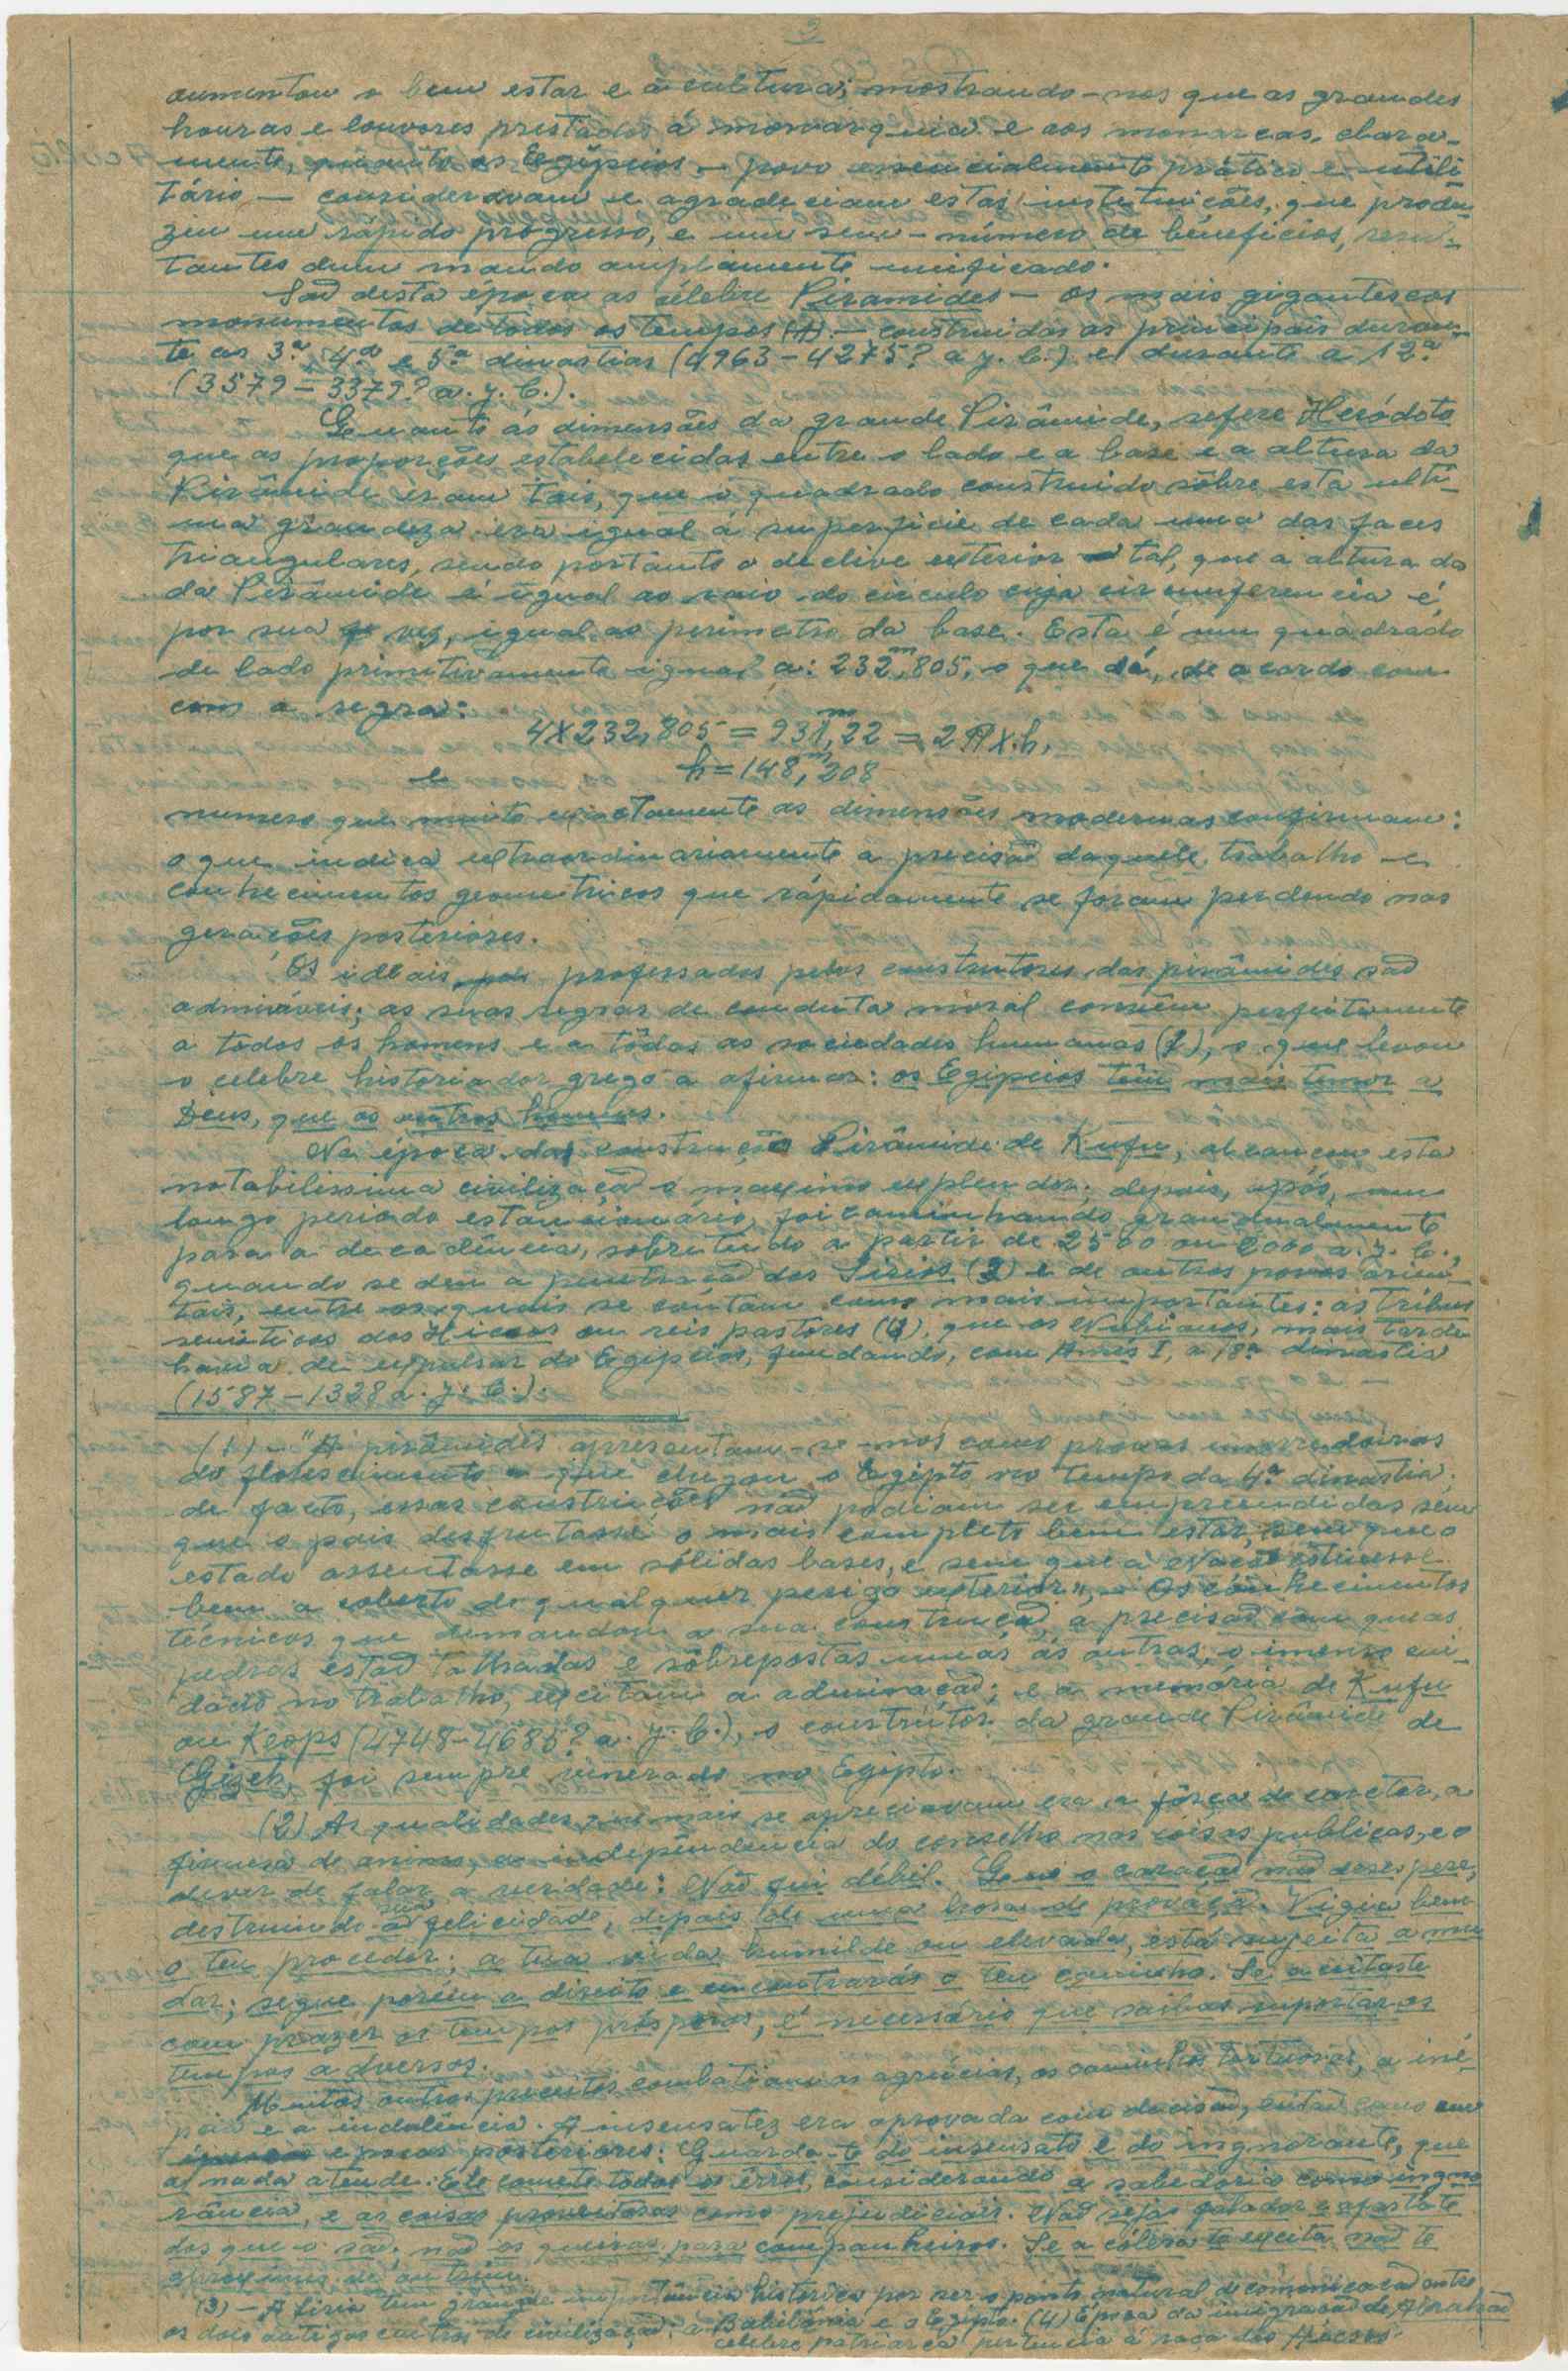 3
aumentou o bem estar e a cultura; mostrando-nos que as grandes
honras e louvores prestados á monarquia e aos monarcas, clara-
mente, quanto os Egípcios — povo essencialmente prático e utili-
tário — consideravam e agradeciam estas instituições, que produ-
ziu um rápido progresso, e um sem-número de benefícios, resul-
tantes dum mando amplamente unificado.
São desta época as célebre Piramides — os mais gigantescos
monumentos de todos os tempos (1) — construidas as principais duran-
te as 3.ª, 4.ª e 5.ª dinastias (4963-4275? a. J. C.) e durante a 12.ª
(3579-3379? a. J. C.).
Quanto ás dimensões da grande Pirâmide, refere Heródoto
que as proporções estabelecidas entre o lado e a base e a altura da
Pirâmide eram tais, que o quadrado construido sôbre esta ulti-
ma grandeza era igual á superficie de cada uma das faces
triangulares, sendo portanto o declive exterior tal, que a altura da
da Pirâmide é igual ao raio do circulo cuja circunferencia é,
por sua vez, igual ao perimetro da base. Esta é um quadrado
de lado primitivamente igual a: 232,m805, o que dá, de acordo com
com a regra:
4X232,805 = 931,m22 = 2πX.h,
h = 148,m208
numero que muito exactamente as dimensões modernas confirmam:
o que indica extraordinariamente a precisão daquele trabalho e
conhecimentos geometricos que rápidamente se foram perdendo nas
gerações posteriores.
Os ideais professados pelos construtores das pirâmides são
admiráveis; as suas regras de conduta moral convêm perfeitamente
a todos os homens e a tôdas as sociedades humanas (2), o que levou
o celebre historiador grego a afirmar: os Egipcios têm mais temor a
Deus, que os outros homens.
Na época da construção Pirâmide de Kufu, alcançou esta
notabilissima civilização o maximo explendor; depois, após, um
longo periodo estancionário, foi caminhando grandualmente
para a decadência, sobretudo a partir de 2500 ou 2000 a. J. C.,
quando se deu a penetração dos Sirios (3) e de outros povos orien-
tais, entre os quais se contam como mais importantes: as tribus
semiticas dos Hicsos ou reis pastores (4), que os Nubianos, mais tarde
havia de expulsar do Egipcios, fundando, com Amés I, a 18.ª dinastia
(1587-1328 a. J. C.).
(1) — "A pirâmides apresentam-se-nos como provas
do florescimento a que chegou o Egipto no tempo da 4.ª dinastia;
de facto, essas construções não podiam ser empreendidas sem
que o pais desfrutasse o mais completo bem estar, sem que o
estado assentasse em sólidas bases, e sem que a Nação estivesse
bem a coberto de qualquer perigo exterior", — Os conhecimentos
técnicos que demandou a sua construção, a precisão com que as
pedras estão talhadas e sôbrepostas umas ás outras, o imenso cui-
dado no trabalho, excitam a admiração; e a memória de Kufu
ou Keops (4748-4685? a. J. C.), o construtor da grande Pirâmide de
Gizeh, foi sempre venerado no Egipto.
(2) As qualidades que mais se apreciavam era a fôrça de caracter, a
firmesa de animo, a independencia do conselho nas coisas publicas, e o
dever de falar a verdade: Não fui débil. Que o coração não desespere,
destruindo a sua felicidade, depois de uma hora de provação. Vigia bem
o teu proceder; a tua vida humilde ou elevada, está sujeita a mu
dar; segue porém a direito e encontrarás o teu caminho. Se aceitaste
com prazer os tempos prósperos, é necessário que saibas suportar os
tempos adversos.
Muitos outros preceitos combatiam as agrúcias, os caminhos tortuosos, a iné-
pcia e a indolência. A insensatez era aprovada com decisão, então como em
epocas posteriores: Guarda-te do insensato e do ingnorante, que
a nada atende. Ele comete todos os erros, considerando a sabedoria como ingno
rância, e as coisas proveitosas como prejudiciais. Não sejas falador e afasta-te
dos que o são; não os queiras para companheiros. Se a cólera te excita não te
aproximes de outrem.
(3) — A Siria tem grande importância histórica por ser o ponto natural de comonicação entre
os dois antigos centros de civilização: a Babilónia e o Egipto. (4) Epoca da imigração de Abraão
celebre patriarca pertencia á raça dos Hicsos.